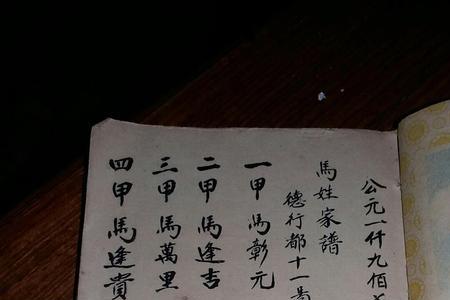 公元一仟九佰
馬姓家譜
德行都十一
一甲馬彰元
二甲馬逢吉
三甲馬萬里
四甲馬逢貴